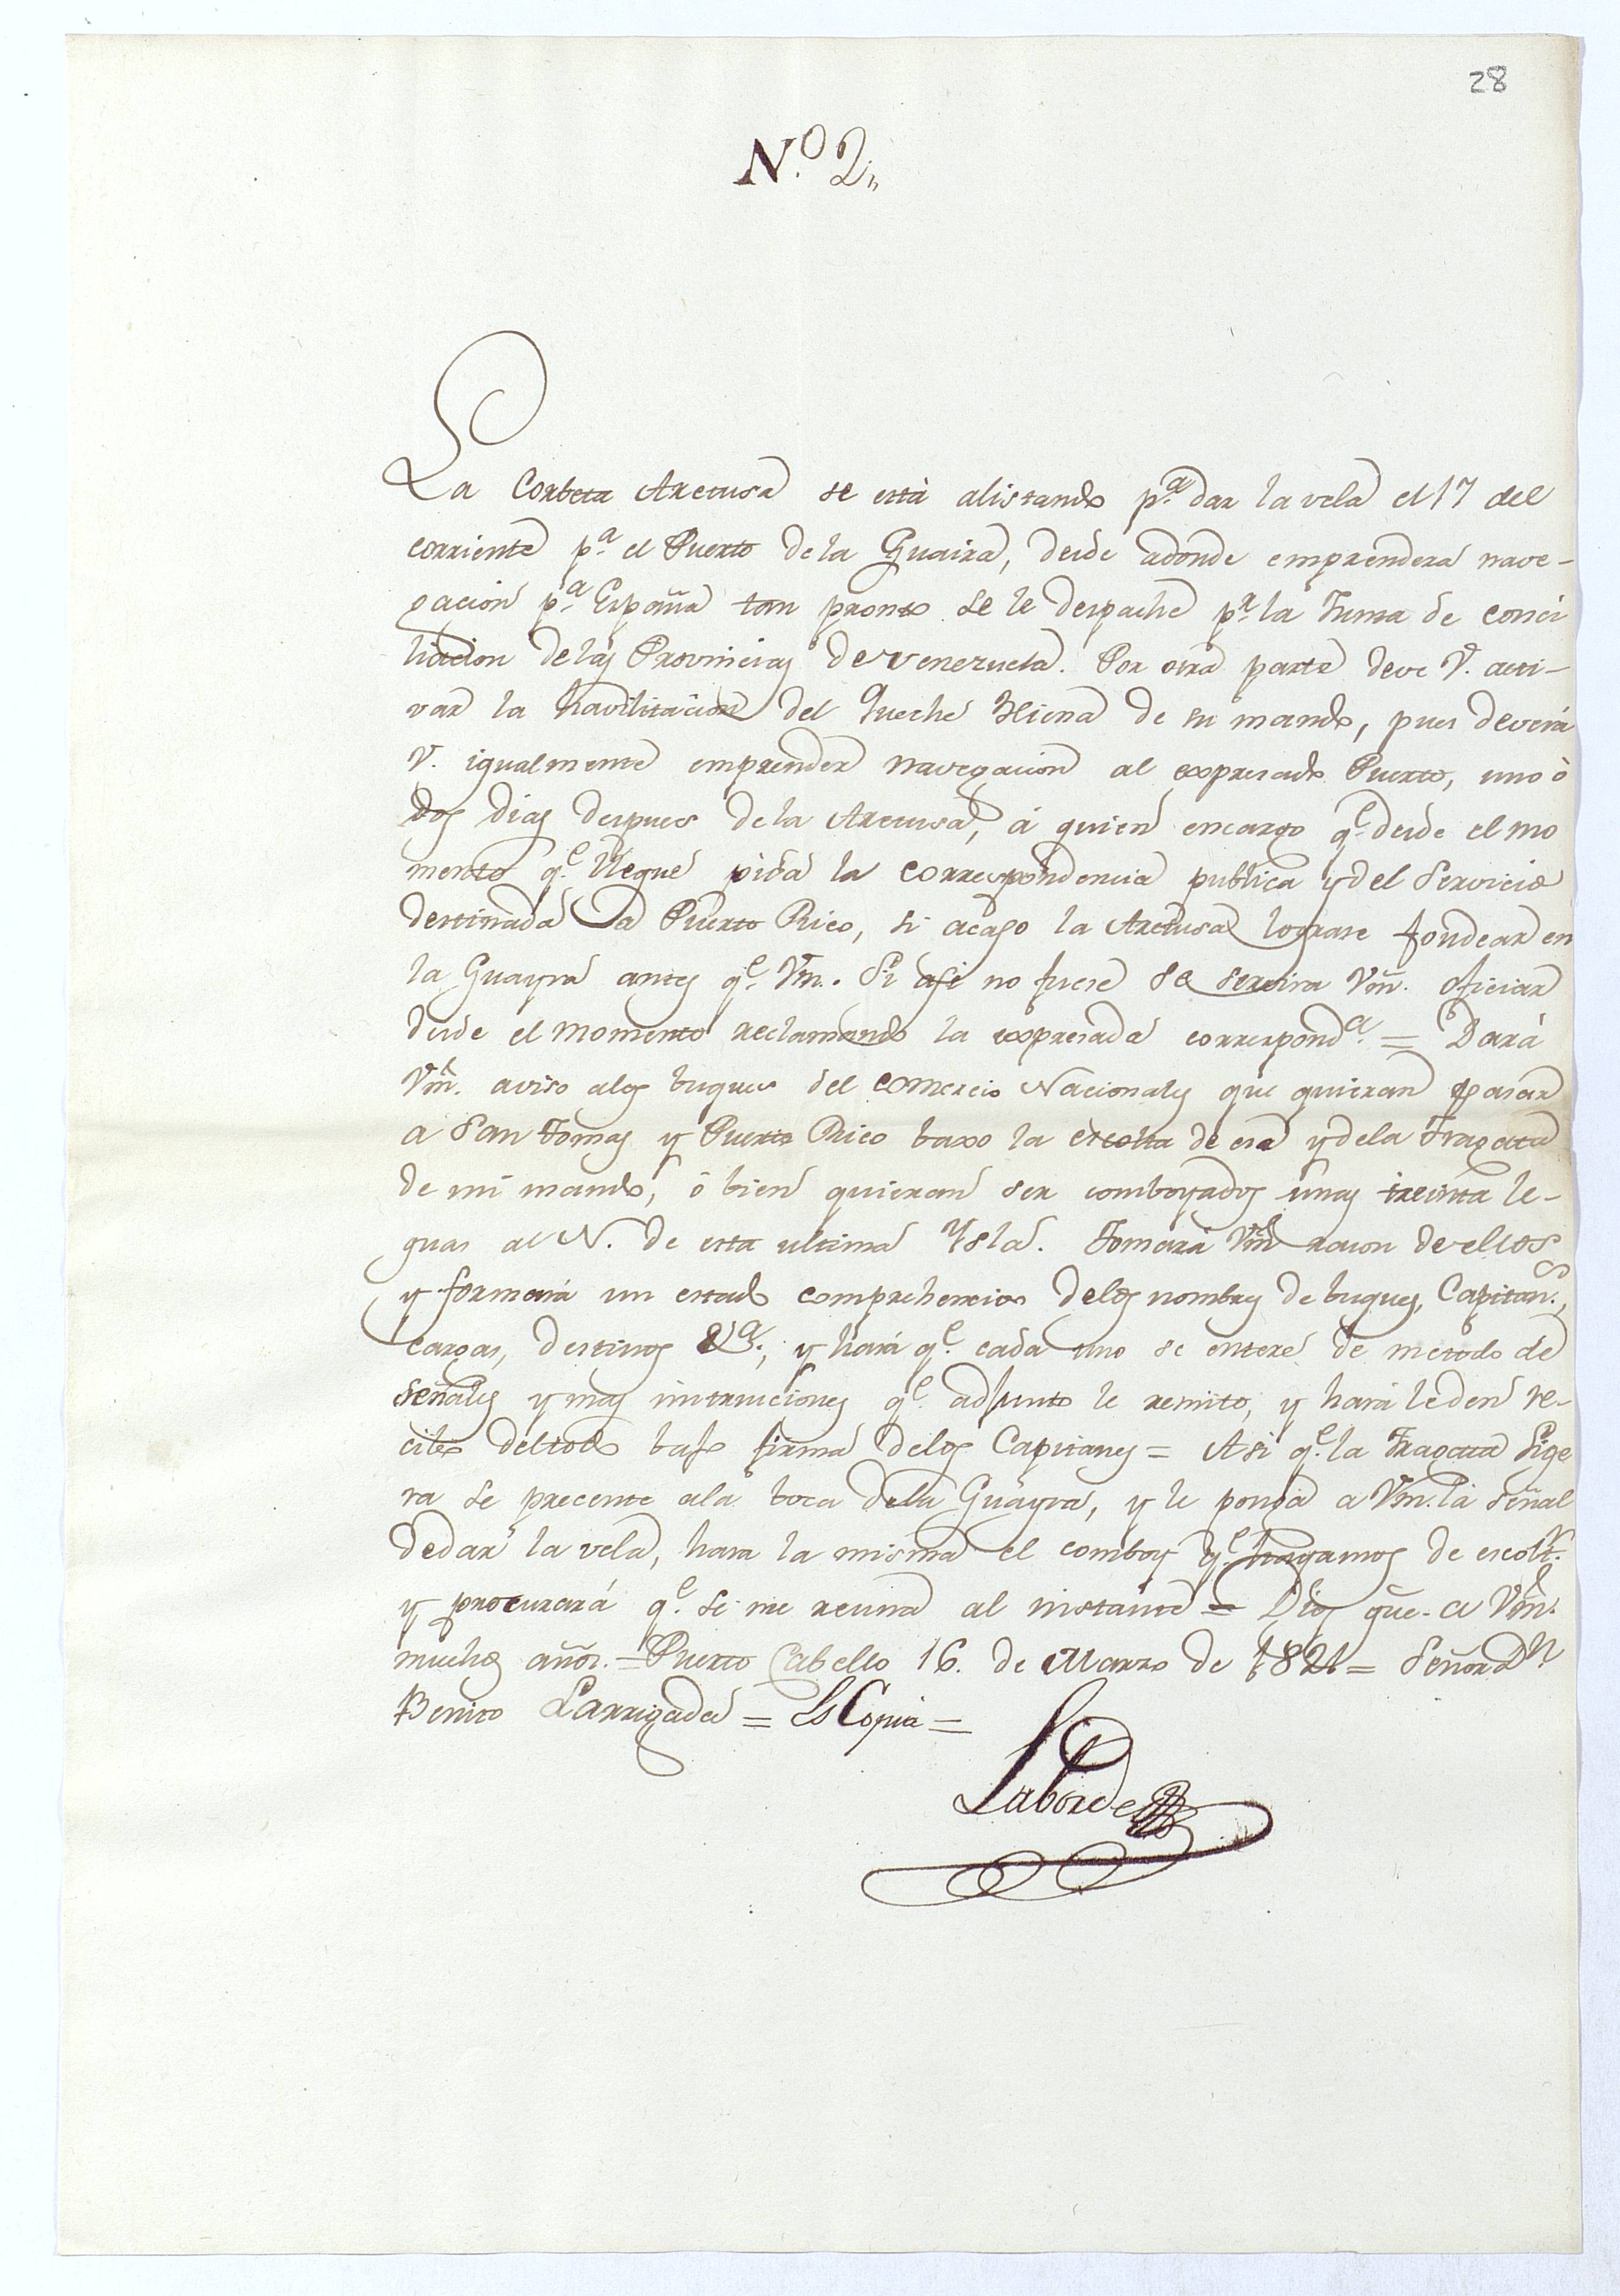 28
N.º 2,,
La Corbeta Aretusa se està alistando p.ª dar la vela el 17 del
corriente p.ª el Puerto de la Guaira, desde adonde emprenderá nave-
gacion p.ª España tan pronto se le despache p.r la Junta de conci
liacion de las Provincias de Venezuela. Por otra parte deve V. acti-
var la havilitacion del Queche Hiena de su mando, pues deverá
V. igualmente emprender navegacion al expresado Puerto, uno ò
dos dias despues de la Aretusa, á quien encargo q.e desde el mo
mento q.e llegue pida la correspondencia publica y del Servicio
destinada a Puerto Rico, si acaso la Aretusa lograse fondear en
la Guayra antes q.e Vm. Si asi no fuese se servira Vm. oficiar
desde el momento reclamando la expresada correspond.ª = Dará
Vm. aviso a los buques del comercio Nacionales que quieran pasar
a San Tomas y Puerto Rico baxo la escolta de esa y de la Fragata
de mi mando, ó bien quieran ser comboyados unas treinta le-
guas al N. de esta ultima Ysla. Tomará Vm. razon de ellos
y formará un estado comprehensivo de los nombres de buques, Capitan.s,
cargas, destinos &.ª, y hará q.e cada uno se entere de metodo de
señales y mas instruciones q.e adjunto le remito, y hará le den re-
cibo del todo bajo firma de los Capitanes = Asi q.e la Fragata Lige
ra se precente a la boca de la Guayra, y le ponga a Vm. la señal
de dar la vela, hara la misma el comboy q.e hayamos de escolt.r
y procurará q.e se me reuna al instante = Dios gue. a Vm.
muchos años. = Puerto Cabello 16. de Marzo de 1821 = Señor D.n
Benito Larrigada = Es Copia =
Laborde